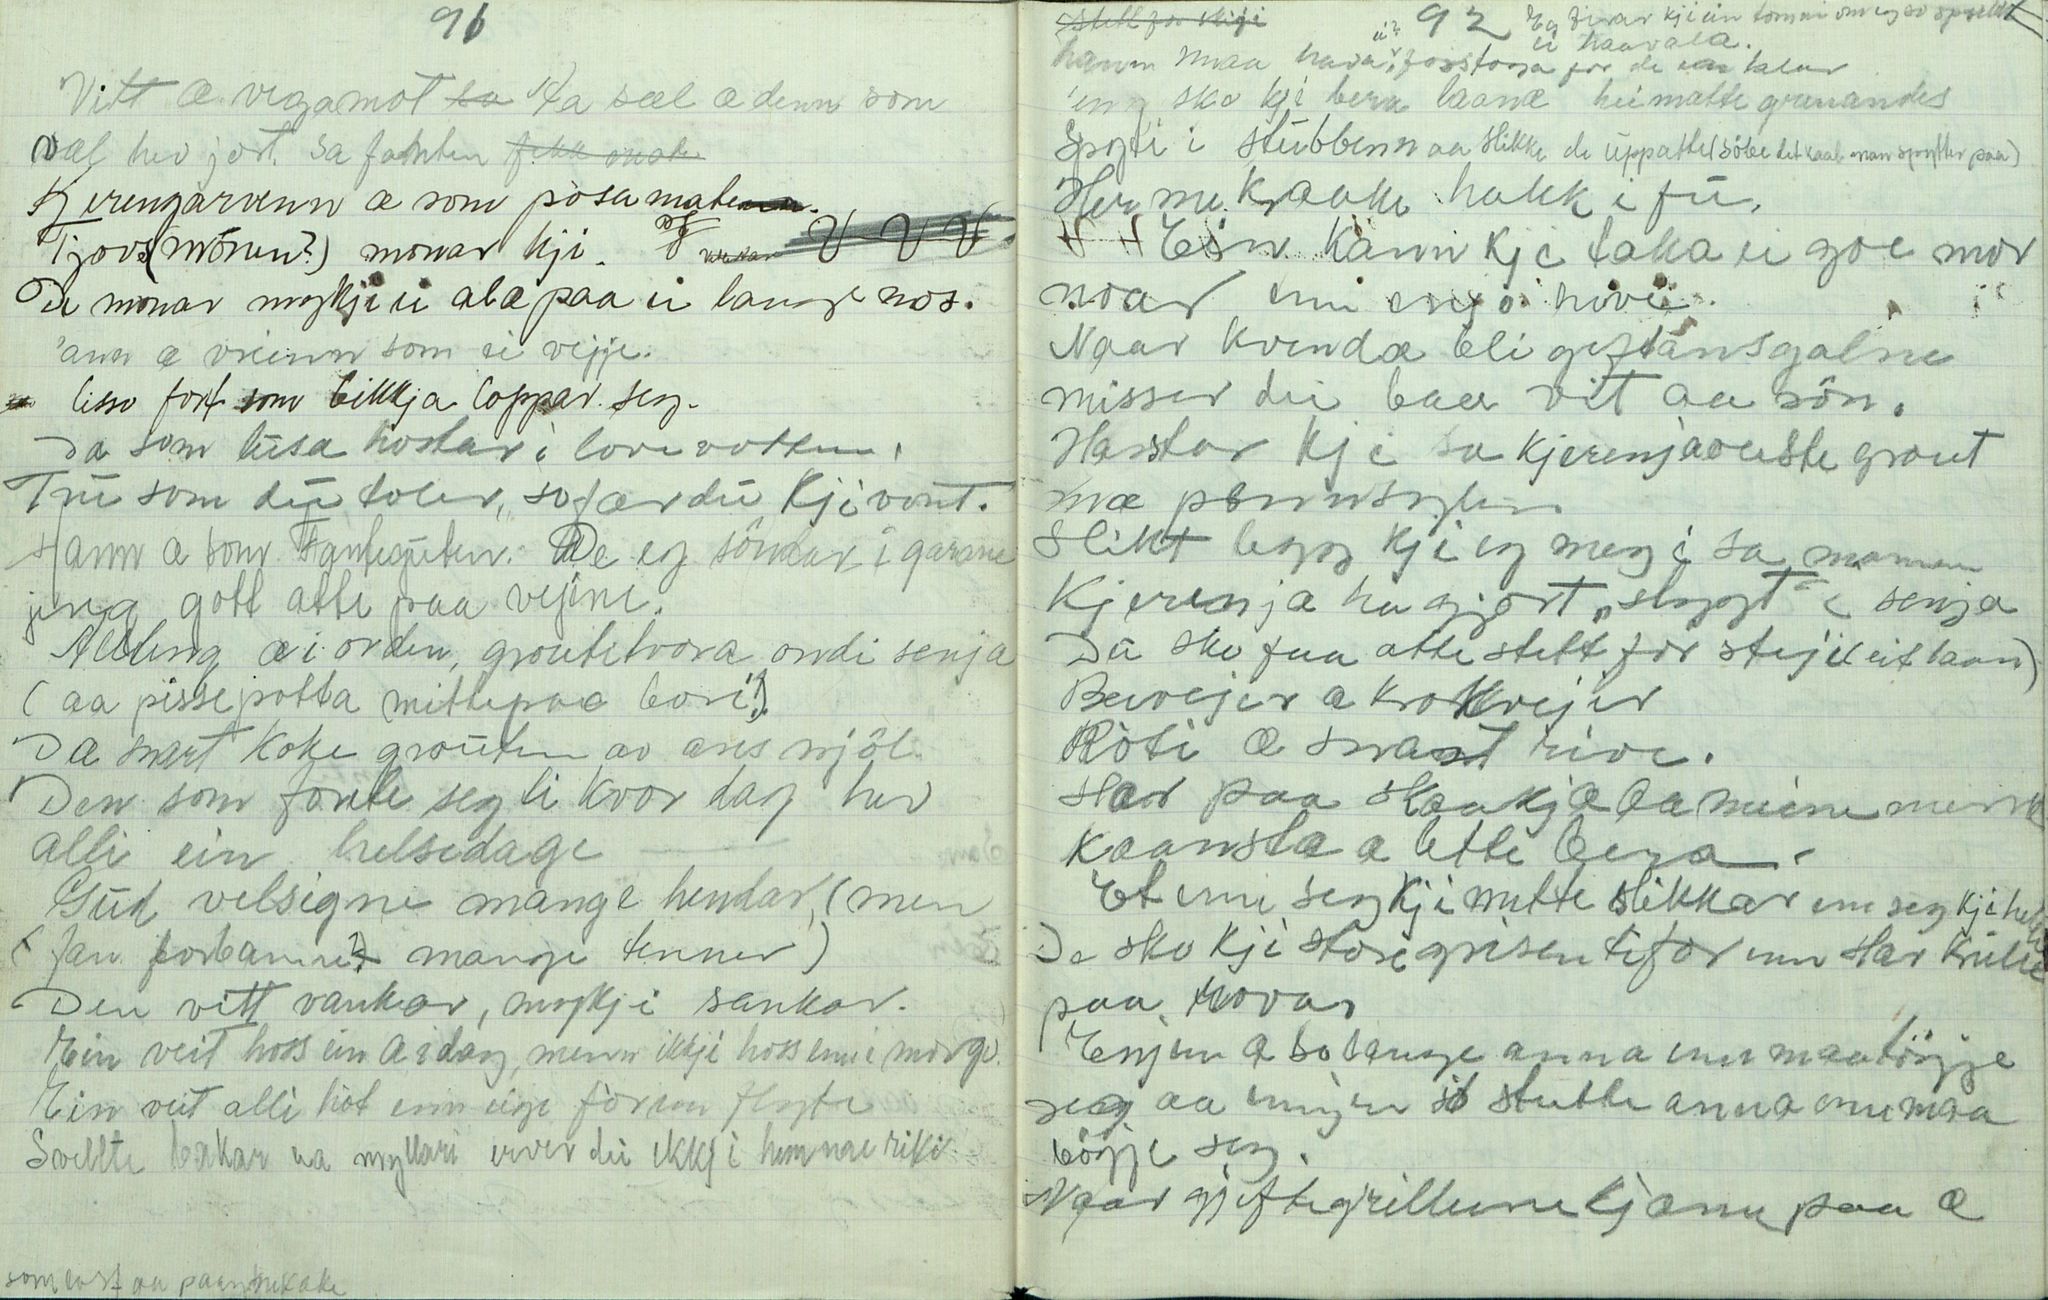 91
Vitt æ vegamot sa 'ta sæl æ denn som
væl hev jort. sa fanten fekk
Kjeringarvenn æ som posa maten.
Tjovs (mónen?) monar kji.
De mónar mykkje ei alæ paa ei lang nos.
'ann æ vreienn som ei vejje.
lisso fort som bikkja loppar seg.
Da som lusa hostar i lovevotten.
Tru som du toler, so fær du kji vont.
Hann æ som Fanteguten. De eg sömar i garane
jeng gott atte paa vejine.
Allting æ i orden, groutetvora ondi senja
(aa pissepotta mittepaa bori!)
Dæ snart koke grouten av ans mjöl.
Den som fonte seg ti kvor dag hev
alli ein helsedage
Gud velsigne mange hendar, (men
(fan forbanne mange tenner)
Den vitt vankar, mykji sankar.
Ein veit hoss ein æ i dag, menn ikkji hoss enn i morgo.
Ein veit alli hot enn eige fór enn flyte
Svelte bakar aa myllari erver dei ikkji himmeriki
som ost aa pannekake
92
Stell for steji
Eg jivar kji ein tomm om eg so spelle
ei haavala.
hann maa hava ei forstoga for de enn talar
'eng sko kji bera laanæ heimatte grenandes
Spyti i stubbenn aa slikke de uppatte (söbe det kaal man spytter paa)
Her me kraake hakk i fu.
Ein kann kji taka ei goe mor
noar enn engo hove.
Naar kvende bli giftansgalne
misser dei baa vit aa són.
Hastar kji sa kjerenja ouste grout
mæ pennsylen
Slikt legg kji eg meg i sa mannen
Kjerenja ha gjort "stygt" i senja
Du sko faa atte stell for steji (eit laan)
Beivejer æ krokvejer
Róti æ snart rivi.
Har paa staakjæ aa meine merr
Kaansla æ lette bera.
Et enn seg kji mette slikkar enn seg kji hel
Dæ sko kji store grisen te for enn har krulle
paa rova
Engin æ so lange anna enn maa töygje
seg aa ingin so stutte anna enn maa
böygje seg.
Naar gjiftegrillune kjeme paa æ